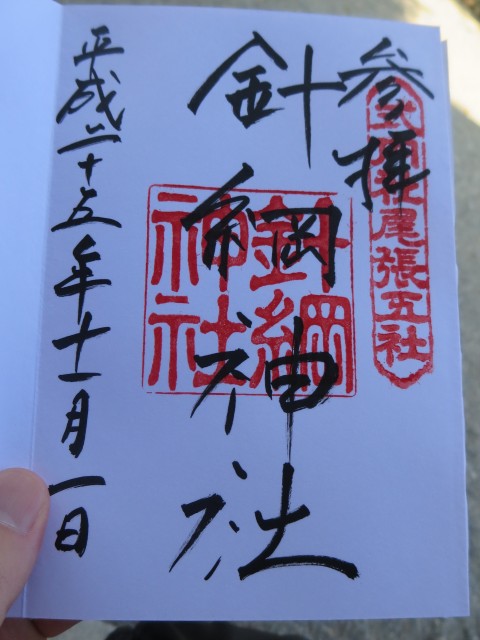 参拝
式内社尾張五社
針綱神社
針綱
神社
平成二十五年十一月一日